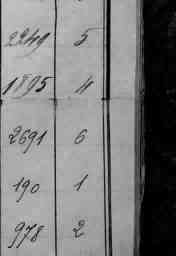 2249 5
1895 4
2691 6
190 1
978 2